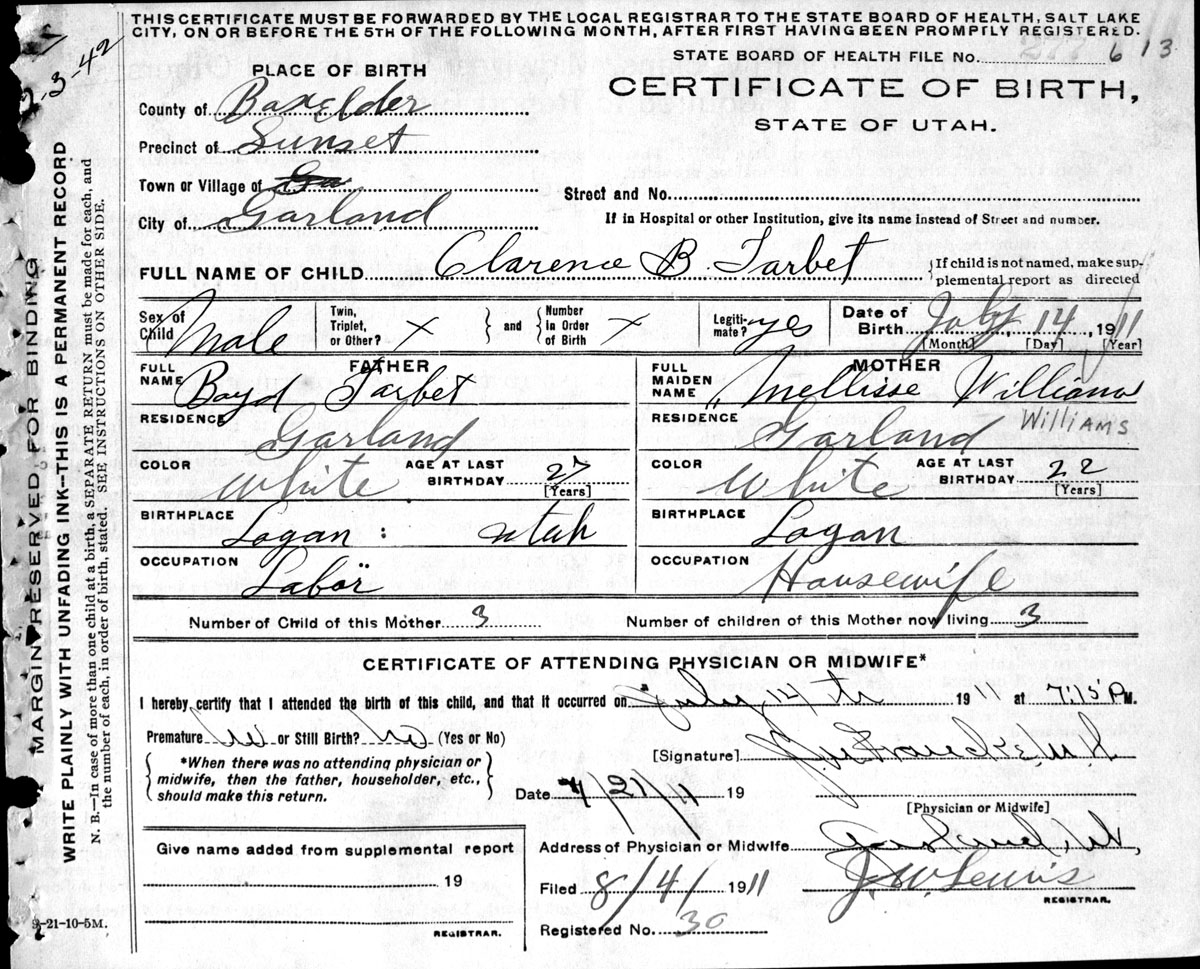 THIS CERTIFICATE MUST BE FORWARDED BY THE LOCAL REGISTRAR TO THE STATE BOARD OF HEALTH, SALT LAKE
CITY, ON OR BEFORE THE 5TH OF THE FOLLOWING MONTH, AFTER FIRST HAVING BEEN PROMPTLY REGISTERED.
3-42
277
STATE BOARD OF HEALTH FILE No. 613
PLACE OF BIRTH
CERTIFICATE OF BIRTH,
STATE OF UTAH.
County of Boxelder
Precinct of Sunset
Town or Village of
Street and No.
City of Garland
If in Hospital or other Institution, give its name instead of Street and number.
FULL NAME OF CHILD Clarence B. Tarbet
{If child is not named, make sup-
plemental report as directed
Sex of Child Male
Twin, Triplet, or Other? X
} and {
Number in Order of Birth X
Legiti-mate? yes
Date of Birth July 14, 1911
[Month] [Day] [Year]
FATHER
FULL NAME Boyd Tarbet
MOTHER
FULL MAIDEN NAME Mellisse Williams
RESIDENCE Garland
RESIDENCE Garland WILLIAMS
COLOR White AGE AT LAST BIRTHDAY 27 [Years]
COLOR White AGE AT LAST BIRTHDAY 22 [Years]
BIRTHPLACE Logan: Utah
BIRTHPLACE Logan
OCCUPATION Labor
OCCUPATION Housewife
Number of Child of this Mother 3
Number of children of this Mother now living 3
CERTIFICATE OF ATTENDING PHYSICIAN OR MIDWIFE*
I hereby certify that I attended the birth of this child, and that it occurred on July, 14th 1911 at 7:15 P.M.
Premature No or Still Birth? No (Yes or No)
[Signature]
{*When there was no attending physician or
midwife, then the father, householder, etc.,
should make this return.}
Date 7/21/11 19
[Physician or Midwife]
Give name added from supplemental report
19
REGISTRAR.
Address of Physician or Midwife Garland, Ut,
Filed 8/4/ 1911 J.W. Lewis
REGISTRAR.
Registered No. 30
-21-10-5M.
MARGIN RESERVED FOR BINDING
WRITE PLAINLY WITH UNFADING INK—THIS IS A PERMANENT RECORD
N. B.—In case of more than one child at a birth, a SEPARATE RETURN must be made for each, and
the number of each, in order of birth, stated. SEE INSTRUCTIONS ON OTHER SIDE.